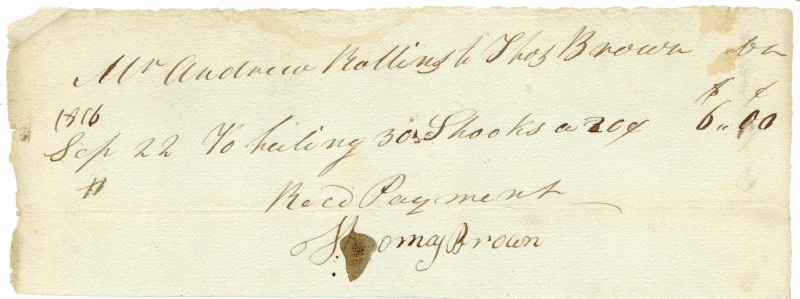 Mr Andrew Rollins to Thos Brown Dr
1816 $ ¢
Sep 22 To hailing 30 Shooks a 20¢ 6,,00
Recd Payment
Thomas Brown